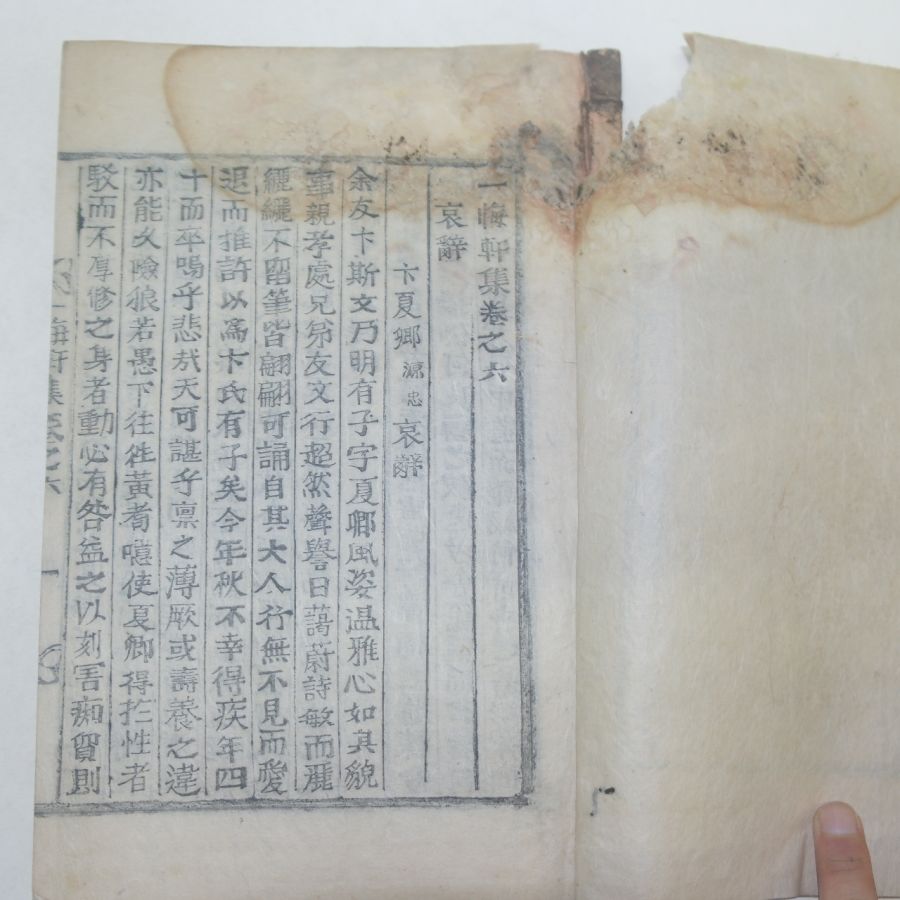 一悔軒集卷之六
哀辭
卞夏鄉源忠哀辭
余友卞斯文乃明有子字夏卿風姿温雅心如其貌
事親孝處兄弟友文行超然聲譽日藹蔚詩敏而麗
纚纚不留筆皆翩翩可誦自其大人行無不見而愛
退而推許以爲卞氏有子矣今年秋不幸得疾年四
十而卒嗚乎悲㢤天可諶乎禀之薄厥或壽養之違
亦能久險狼若愚下往徃黃耉噫使夏卿得於性者
駁而不厚修之身者動必有咎益之以刻害痴貿則
一悔軒集卷之六
一